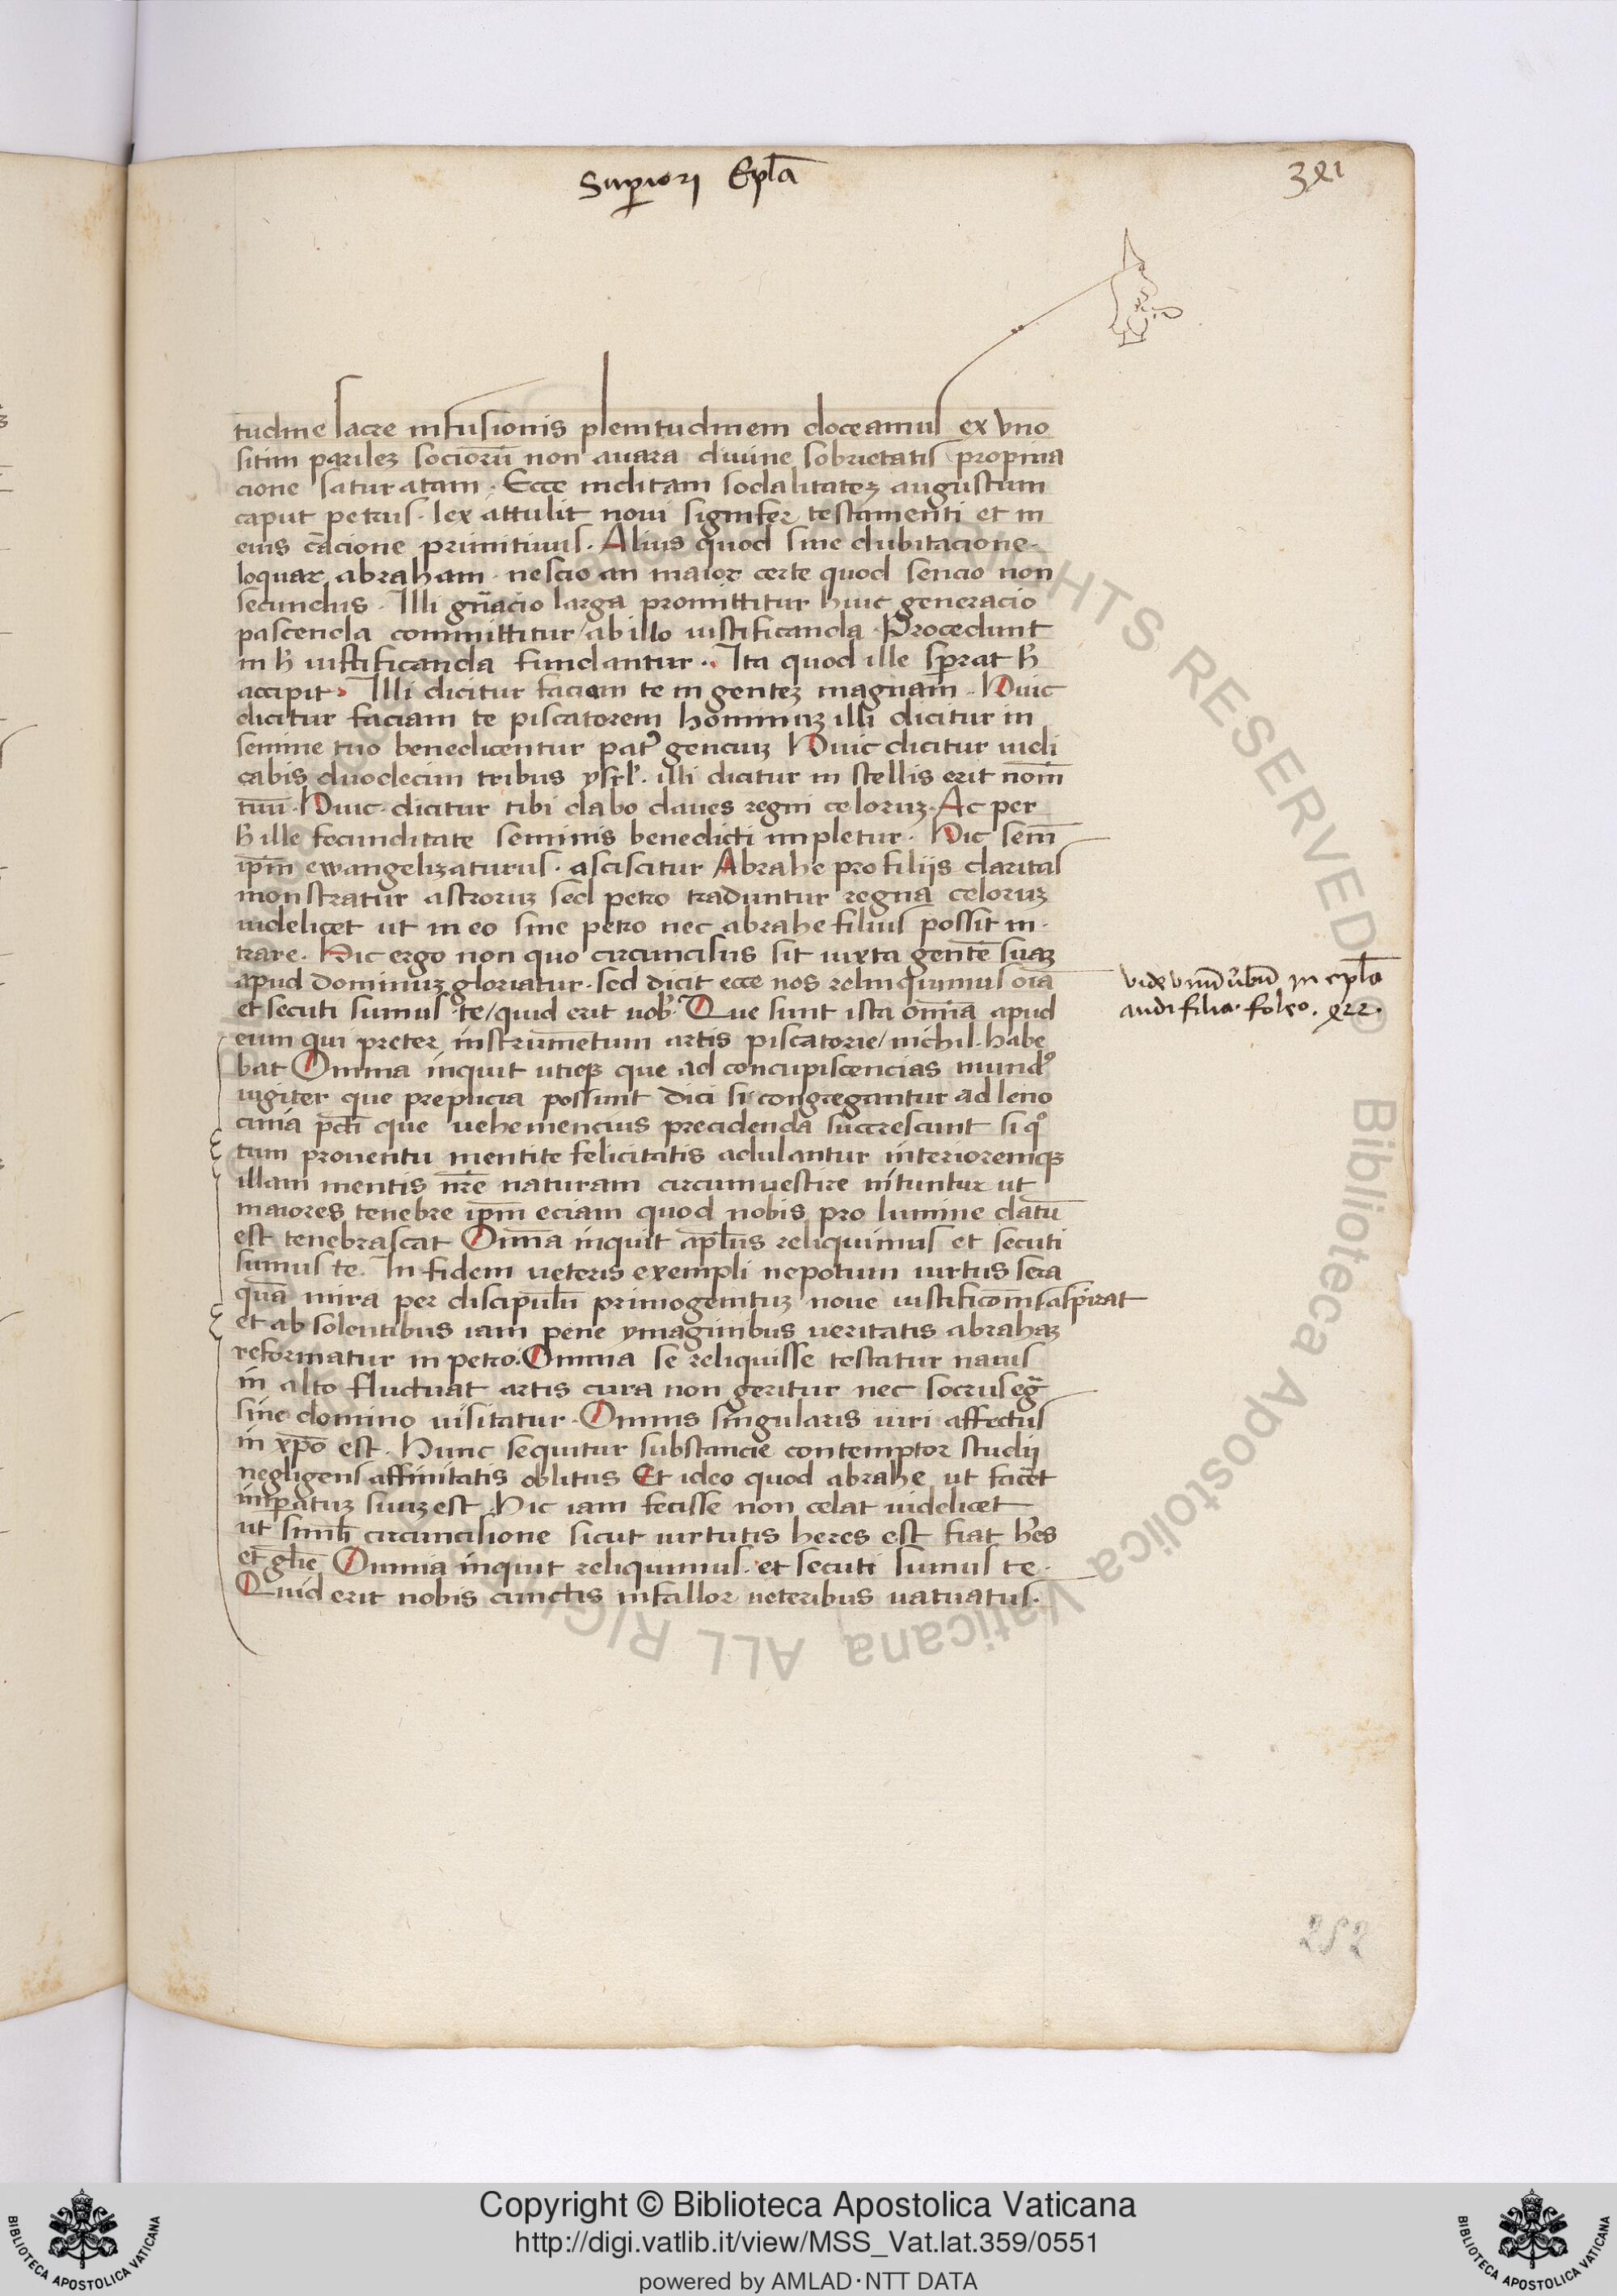 Superiori Epl̄a
3ꝯ1
tudine sacre infusionis plenitudinem doceamus ex vno
sitim parilez socioru̅ non auara diuine sobrietatis propina
cione saturatam. Ecce inclitam sodalitatez augustum
caput petrus. lex attulit noui signifer testamenti et in
eius c̅acione primitiuus. Alius quod sine dubitacione.
loquar abraham. nescio an maior certe quod sencio non
secundus. Illi gn̅acio larga promittitur huic generacio
pascenda committitur / ab illo iustificanda. Procedunt
in h̅ iustificanda fundantur. Ita quod ille sperat h̅
accipit. Illi dicitur faciam te in gentez magnam. Huic
dicitur faciam te piscatorem hominuz illi dicitur in
semine tuo benedicentur pat᾽ genciuz Huic dicitur iudi
cabis duodecim tribus ysrl᾽. illi dicitur in stellis erit nom̅
tuu̅. Huic. dicitur tibi dabo claues regni celoruz. Ac per
h̅ ille fecunditate seminis benedicti impletur. Hic sem̅
ip̅m ewangelizaturus. asciscitur Abrahe pro filijs claritas
monstratur astroruz sed petro traduntur regna celoruz
uidelicet ut in eo sine petro nec abrahe filius possit in.
trare. Hic ergo non quo circuncisus sit iuxta gente̅ suaz
apud dominuz gloriatur. sed dicit ecce nos relinquimus oı̅a
et secuti sumus te / quid erit nob᾽. Que sunt ista om̅ia apud
eum qui preter instrume̅tum artis piscatorie / nichil. habe
bat Omnia inquit utiqꝫ que ad concupiscencias mund᾽
iugiter que prepucia possunt dici si congregantur ad leno
cinia pc̅ti que vehemencius precidenda succrescunt si qͦ
tum prouentu mentite felicitatis adulantur interioremqꝫ
illam mentis nr̅e naturam circumuestire nituntur ut
maiores tenebre ip̅m eciam quod nobis pro lumine datu̅
est tenebrascat Om̅a inquit apl̅us reliquimus et secuti
sumus te. In fidem ueteris exempli nepotum uirtus sera
qua̅ mira per discipulu̅ primogenituz noue iustificom̅s aspirat
et ab solentibus iam pene ymaginibus ueritatis abrahaz
reformatur in petro. Omnia se reliquisse testatur nauis
in alto fluctuat artis cura non geritur nec socrus eg̅
sine domino uisitatur. Omnis singularis uiri affectus
in xp̅o est. Hunc sequitur substancie contemptor studij
negligens affinitatis oblitus Et ideo quod abrahe ut facet
imperatuz suuz est Hic iam fecisse non celat uidelicet
ut simil̅i circuncisione sicut uirtutis heres est fiat h̅es
et gl̅ie Omnia inquit reliquimus. et secuti sumus te.
Quid erit nobis cunctis infallor ueteribus uatuatus.
vide
in epl̄a
audi filia. folio.
252
Copyright © Biblioteca Apostolica Vaticana
http://digi.vatlib.it/view/MSS_Vat.lat.359/0551
powered by AMLAD·NTT DATA
BIBLIOTECA APOSTOLICA VATICANA
BIBLIOTECA APOSTOLICA VATICANA